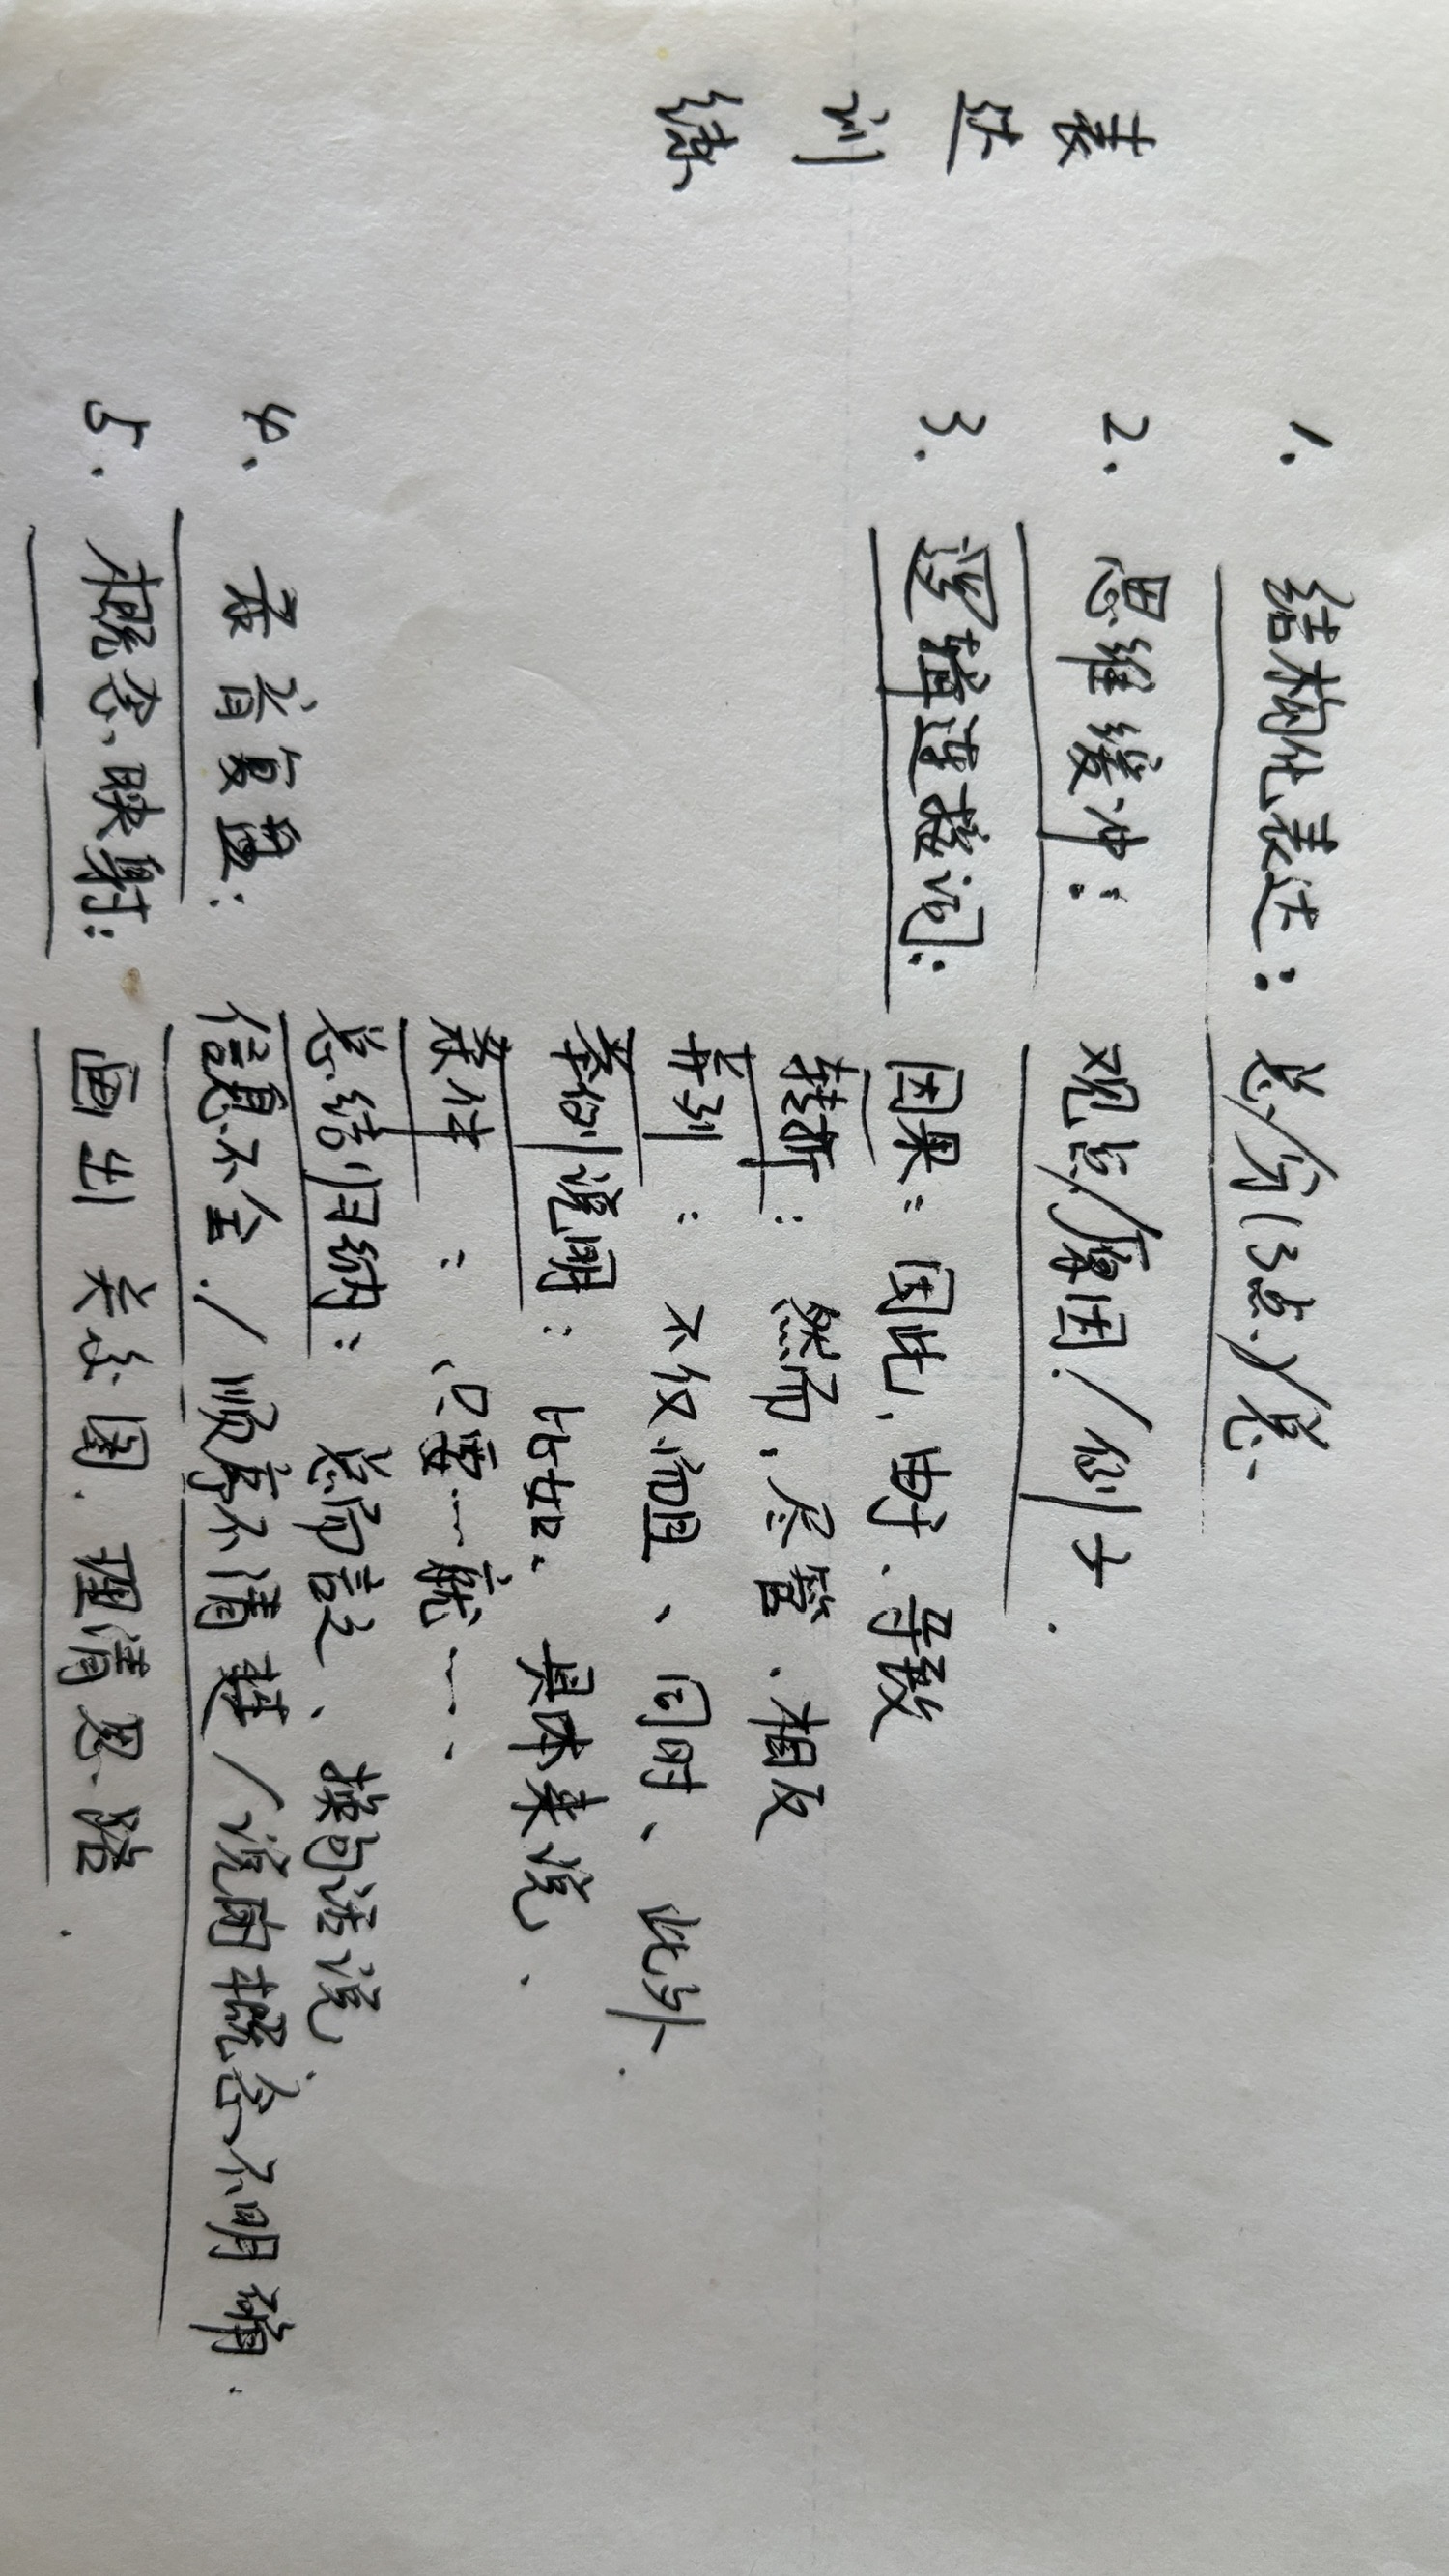 表达训练
1. 结构化表达: 总/分(3点)/总.
2. 思维缓冲: 观点/原因/例子.
3. 逻辑连接词: 因果: 因此, 由于, 导致
转折: 然而, 尽管, 相反
并列: 不仅而且、同时、此外.
举例说明: 比如. 具体来说.
条件: 只要……就……
总结归纳: 总而言之、换句话说.
4. 录音复盘: 信息不全/顺序不清楚/说的概念不明确.
5. 概念映射: 画出关系图, 理清思路.